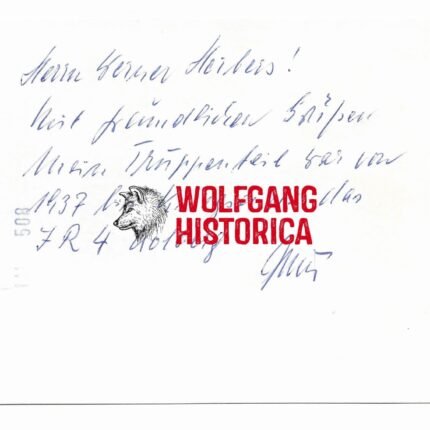 Herrn Werner Herbers!
Mit freundlichen Grüßen
Mein Truppenteil war von
1937 das
JR 4
WOLFGANG
HISTORICA